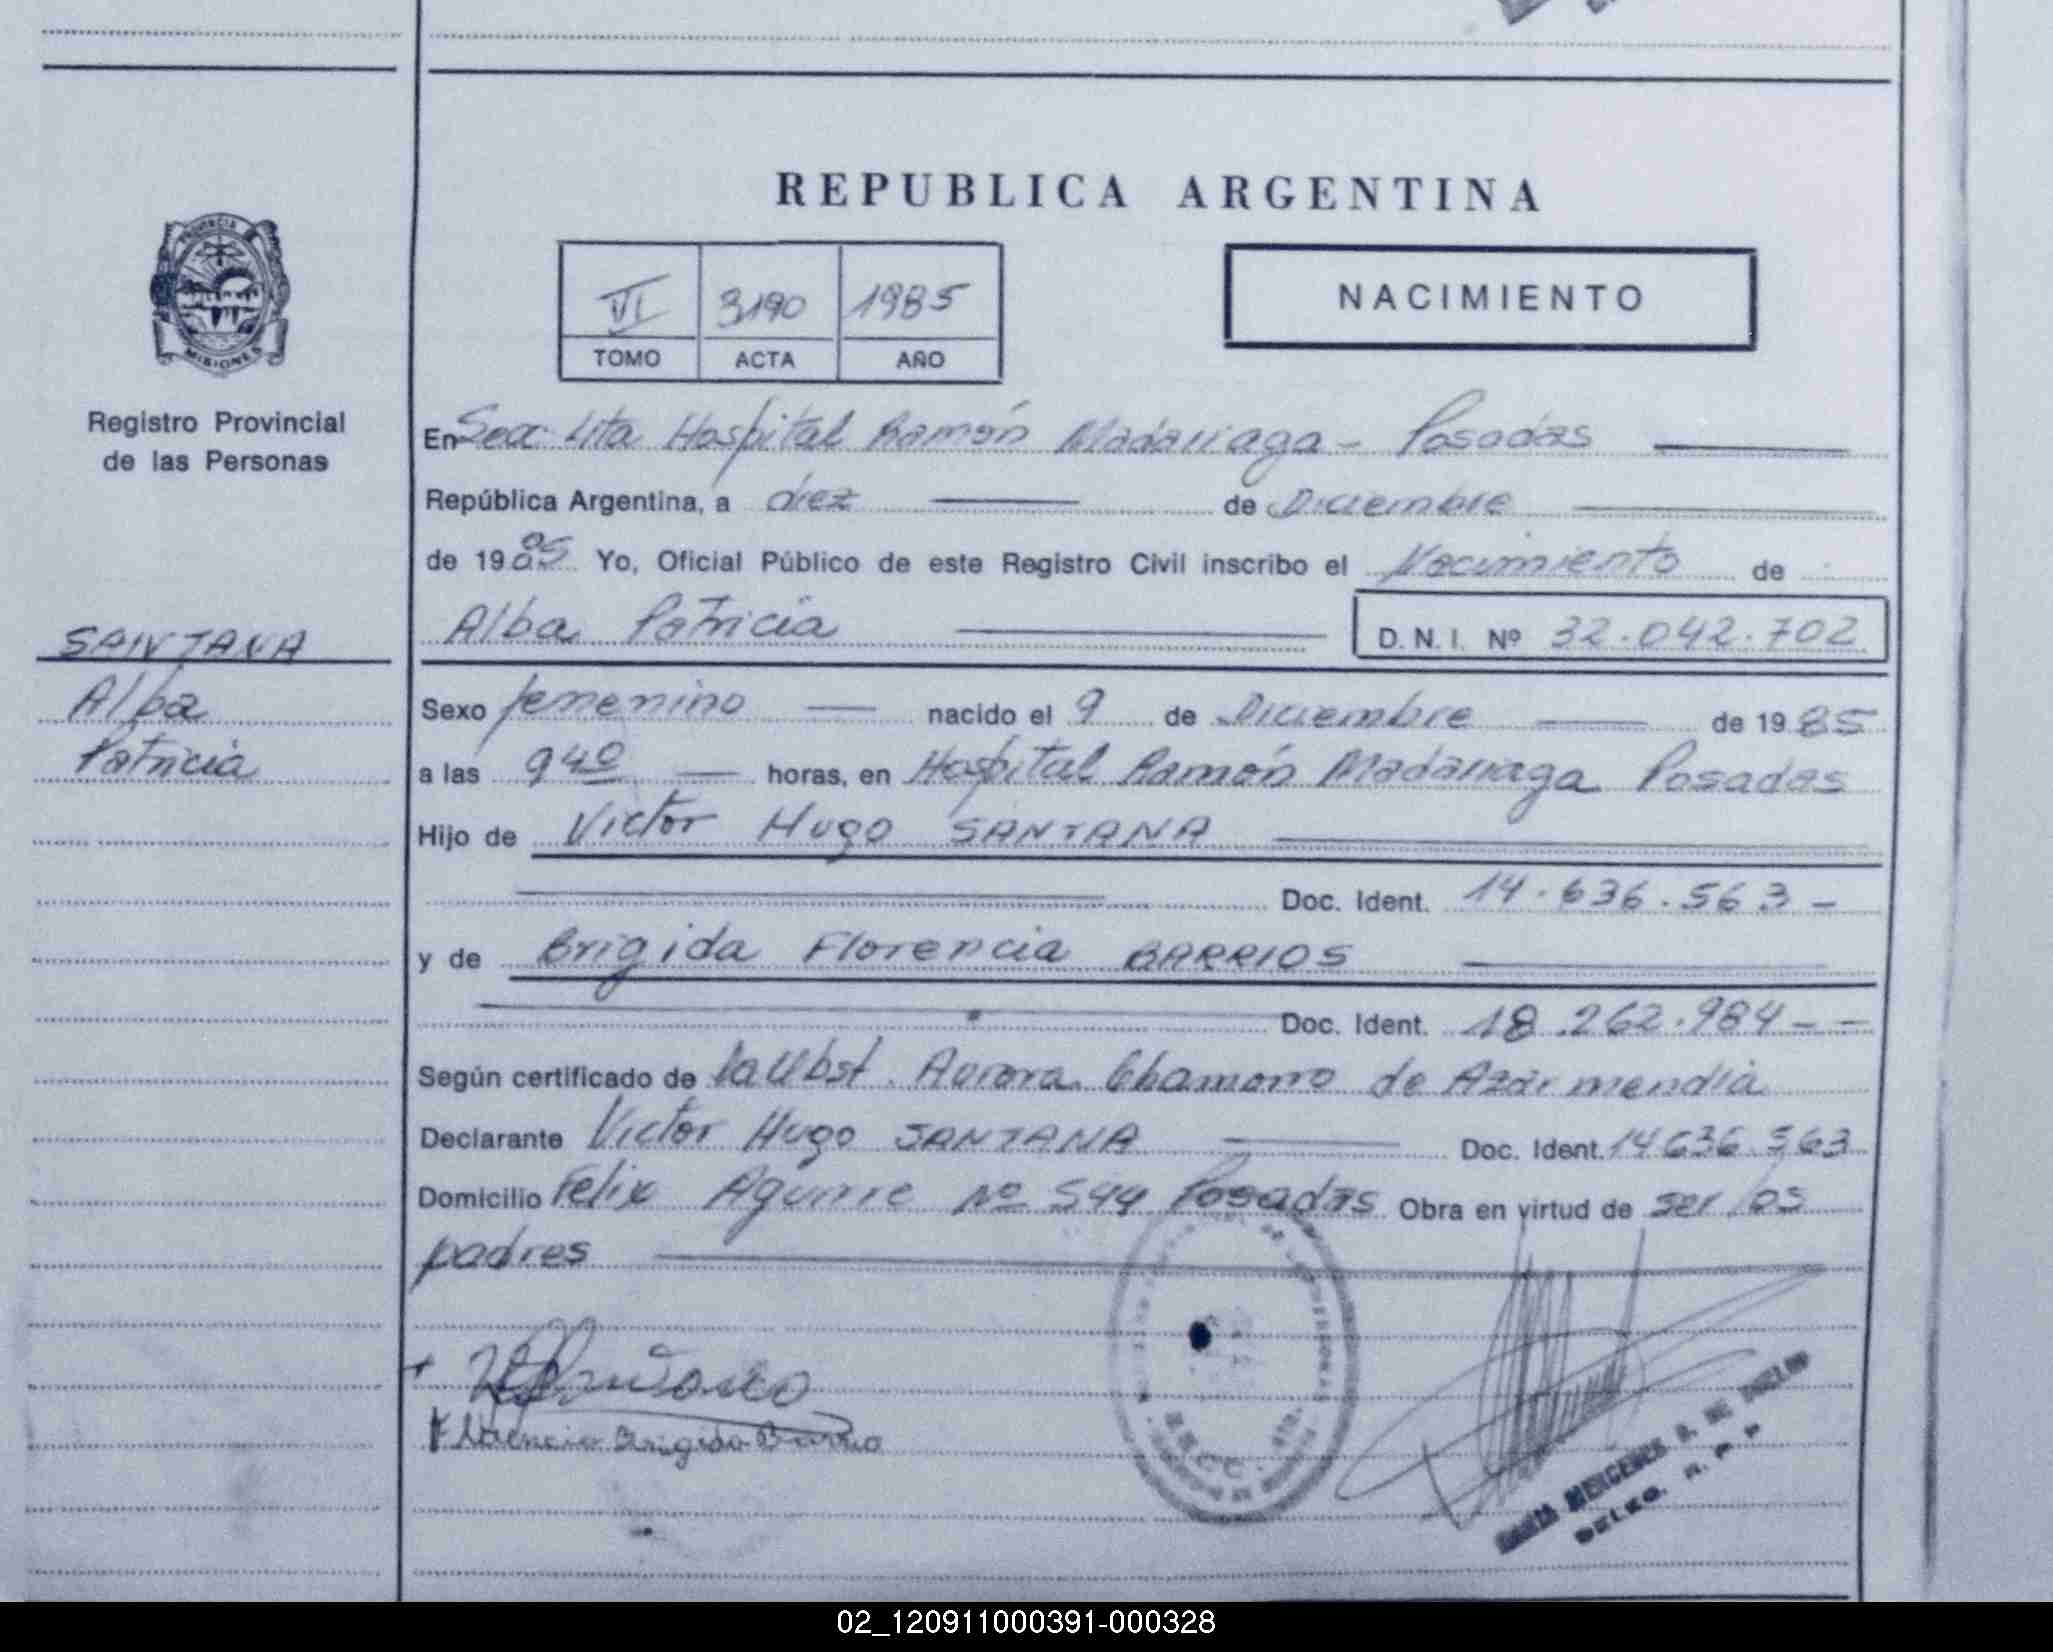 REPUBLICA ARGENTINA
VI 3190 1985
TOMO ACTA AÑO
NACIMIENTO
PROVINCIA
MISIONES
Registro Provincial
de las Personas
SANTANA
Alba
Patricia
En Hospital Ramón Madariaga - Posadas
República Argentina, a diez de Diciembre
de 1985 Yo, Oficial Público de este Registro Civil inscribo el Nacimiento de
Alba Patricia D.N.I. Nº 32.042.702
Sexo femenino nacido el 9 de Diciembre de 1985
a las 940 horas, en Hospital Ramón Madariaga Posadas
Hijo de Victor Hugo SANTANA
Doc. Ident. 14.636.563 -
y de Brigida Florencia BARRIOS
Doc. Ident. 18.262.984 - -
Según certificado de la Obst. Aurora Chamorro de Azarmendia
Declarante Victor Hugo SANTANA Doc. Ident. 14636.563
Domicilio Felix Aguirre Nº 544 Posadas Obra en virtud de ser los
padres
Florencia Brigida
MERCEDES DE
02_120911000391-000328